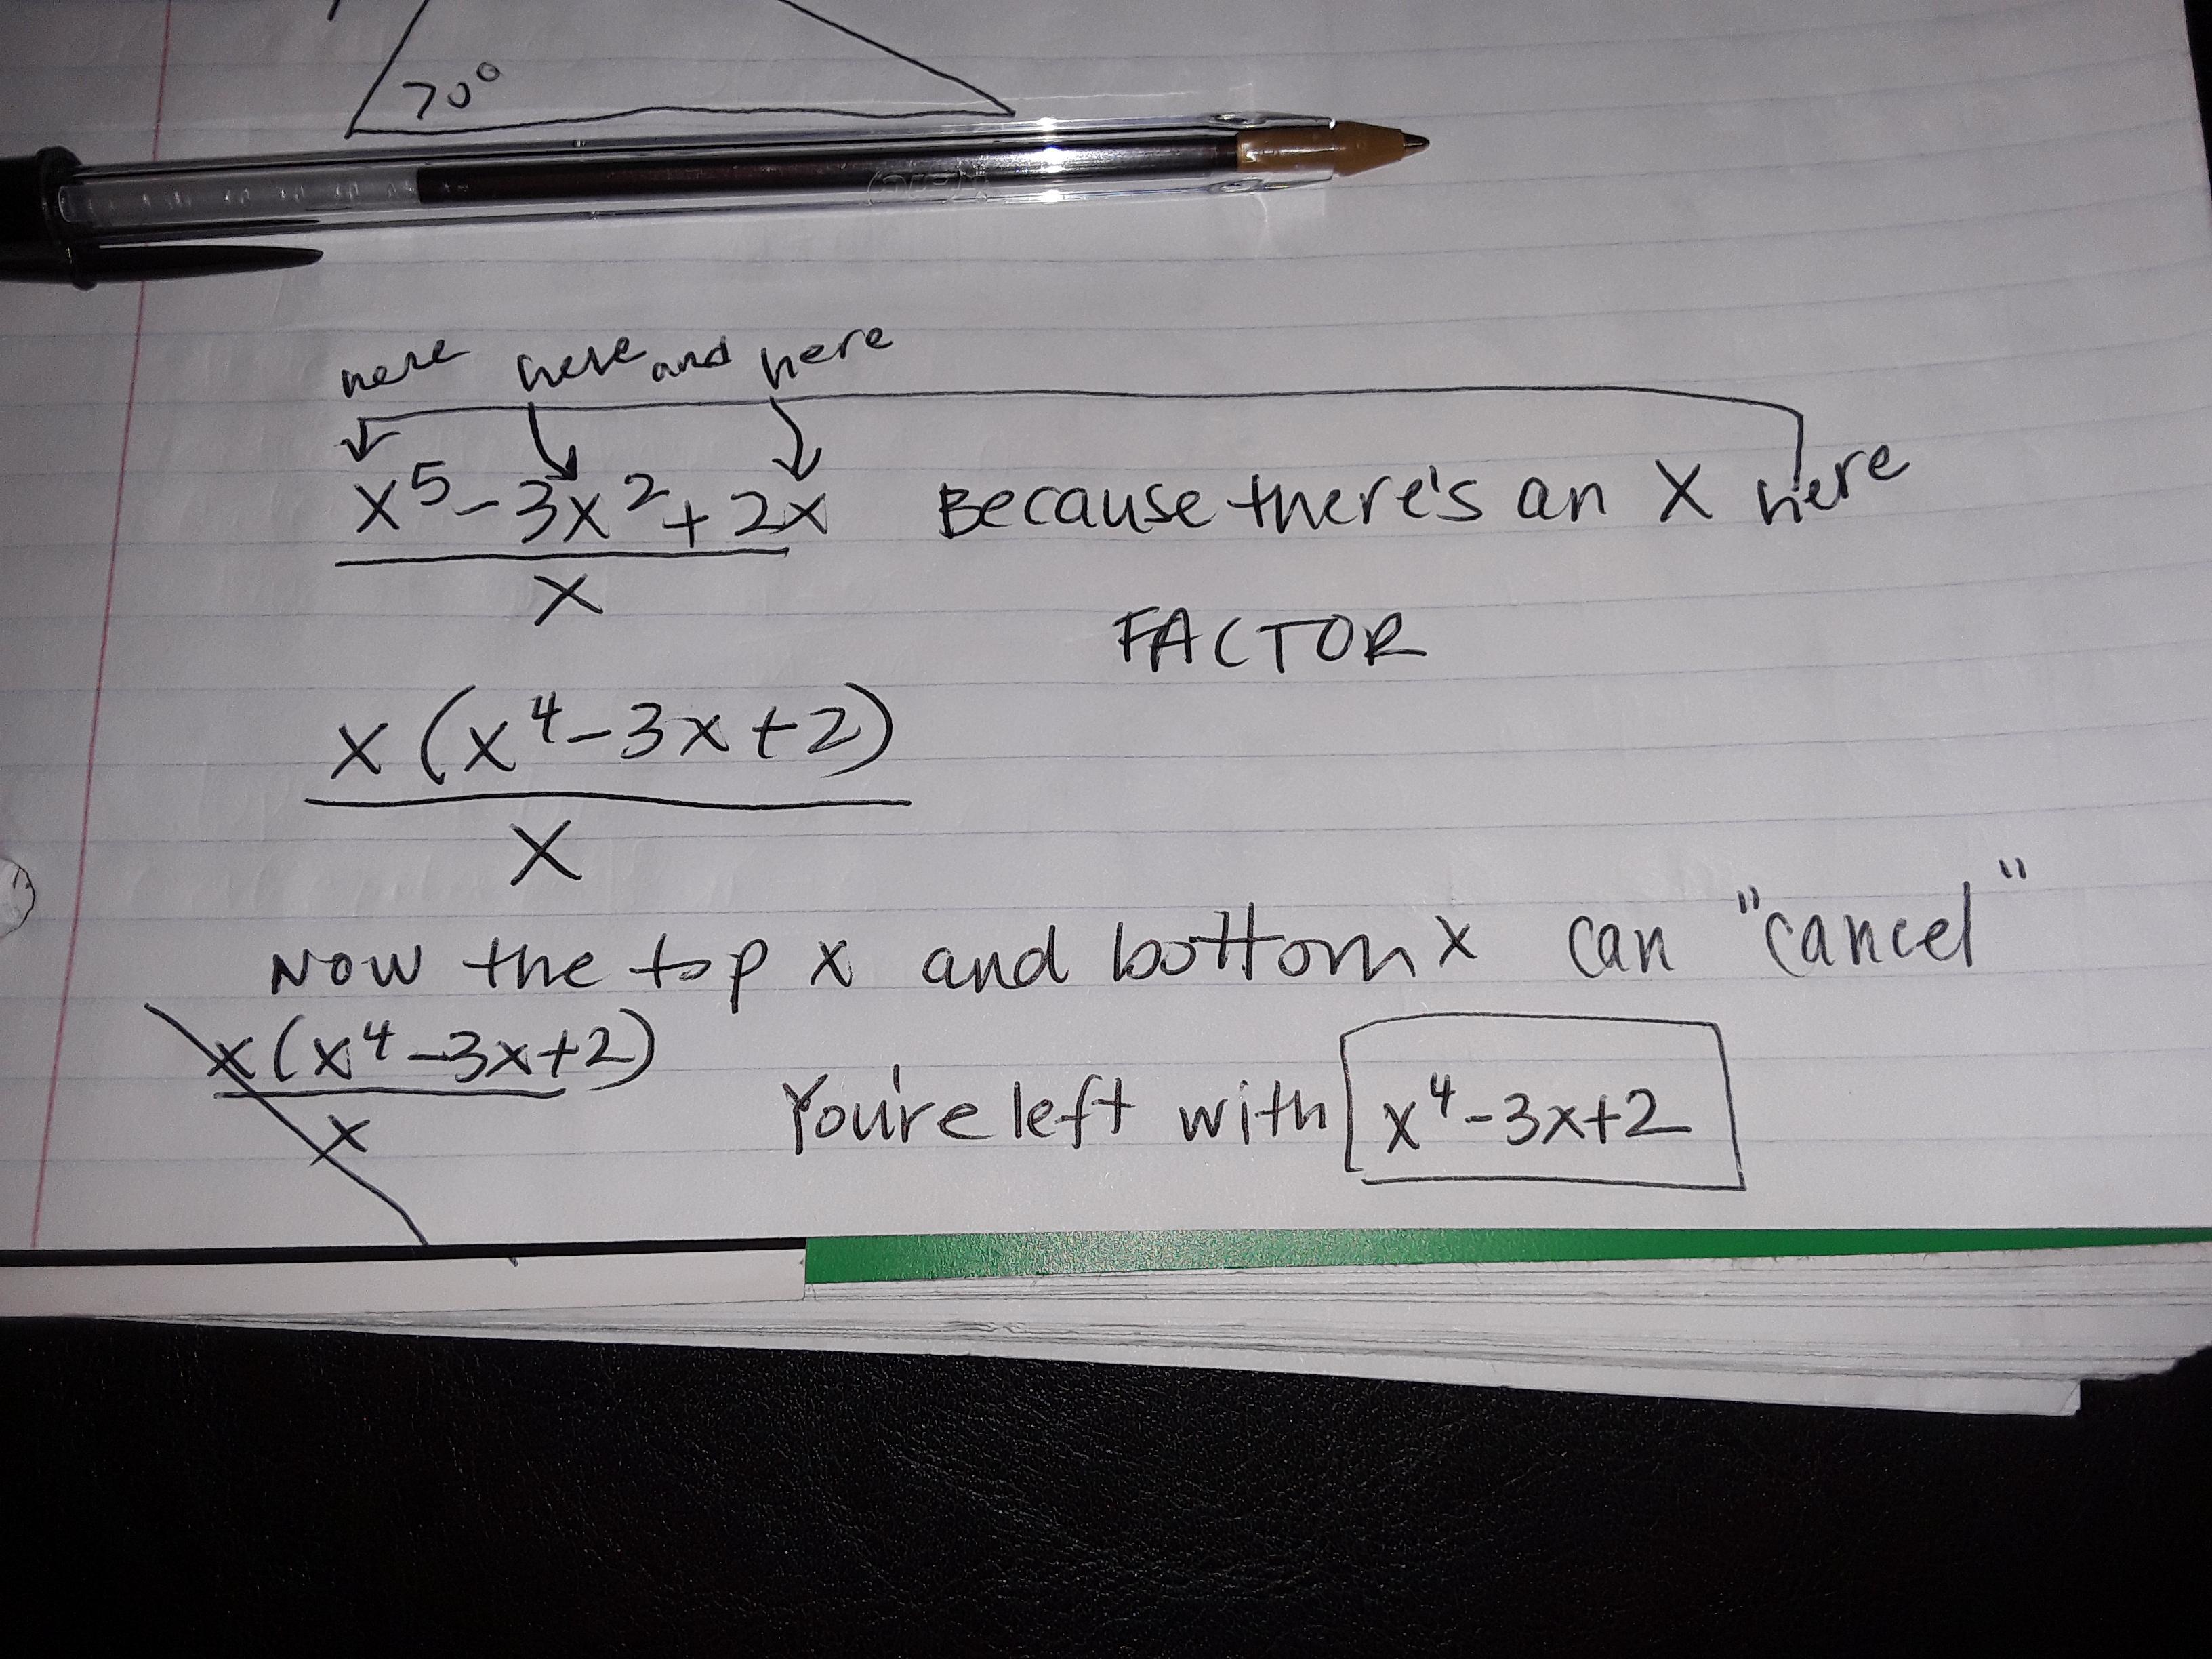 70°
here here and here
x⁵-3x²+2x Because there's an X here
x
FACTOR
x(x⁴-3x+2)
x
NOW the top x and bottom x can "cancel"
x(x⁴-3x+2)
x
You're left with x⁴-3x+2